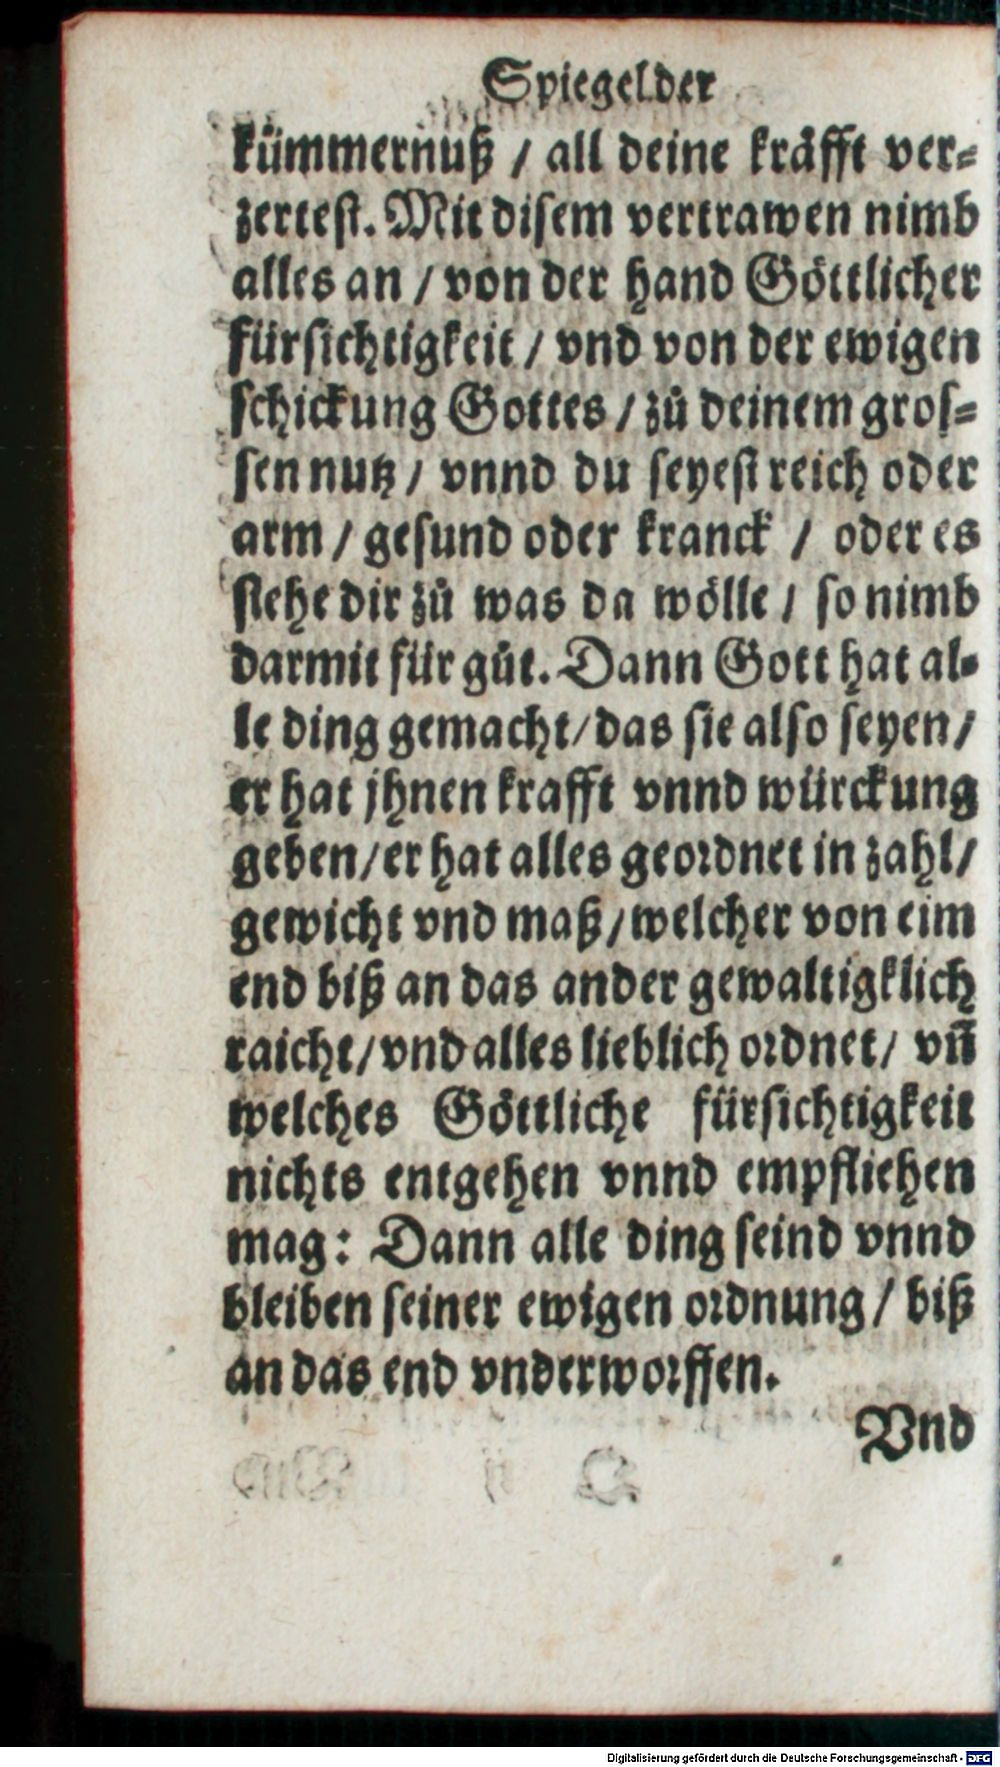 Spiegel der
kümmernuß / all deine kräfft ver-
zertest. Mit disem vertrawen nimb
alles an / von der hand Göttlicher
fürsichtigkeit / vnd von der ewigen
schickung Gottes / zů deinem gros-
sen nutz / vnnd du seyest reich oder
arm / gesund oder kranck / oder es
stehe dir zů was da wölle / so nimb
darmit für gůt. Dann Gott hat al-
le ding gemacht / das sie also seyen /
er hat jhnen krafft vnnd würckung
geben / er hat alles geordnet in zahl /
gewicht vnd maß / welcher von eim
end biß an das ander gewaltigklich
raicht / vnd alles lieblich ordnet / vñ
welches Göttliche fürsichtigkeit
nichts entgehen vnnd empfliehen
mag: Dann alle ding seind vnnd
bleiben seiner ewigen ordnung / biß
an das end vnderworffen.
Vnd
Digitalisierung gefördert durch die Deutsche Forschungsgemeinschaft - DFG